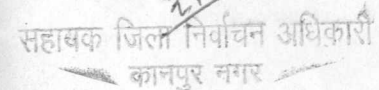 सहायक जिला निर्वाचन अधिकारी
कानपुर नगर